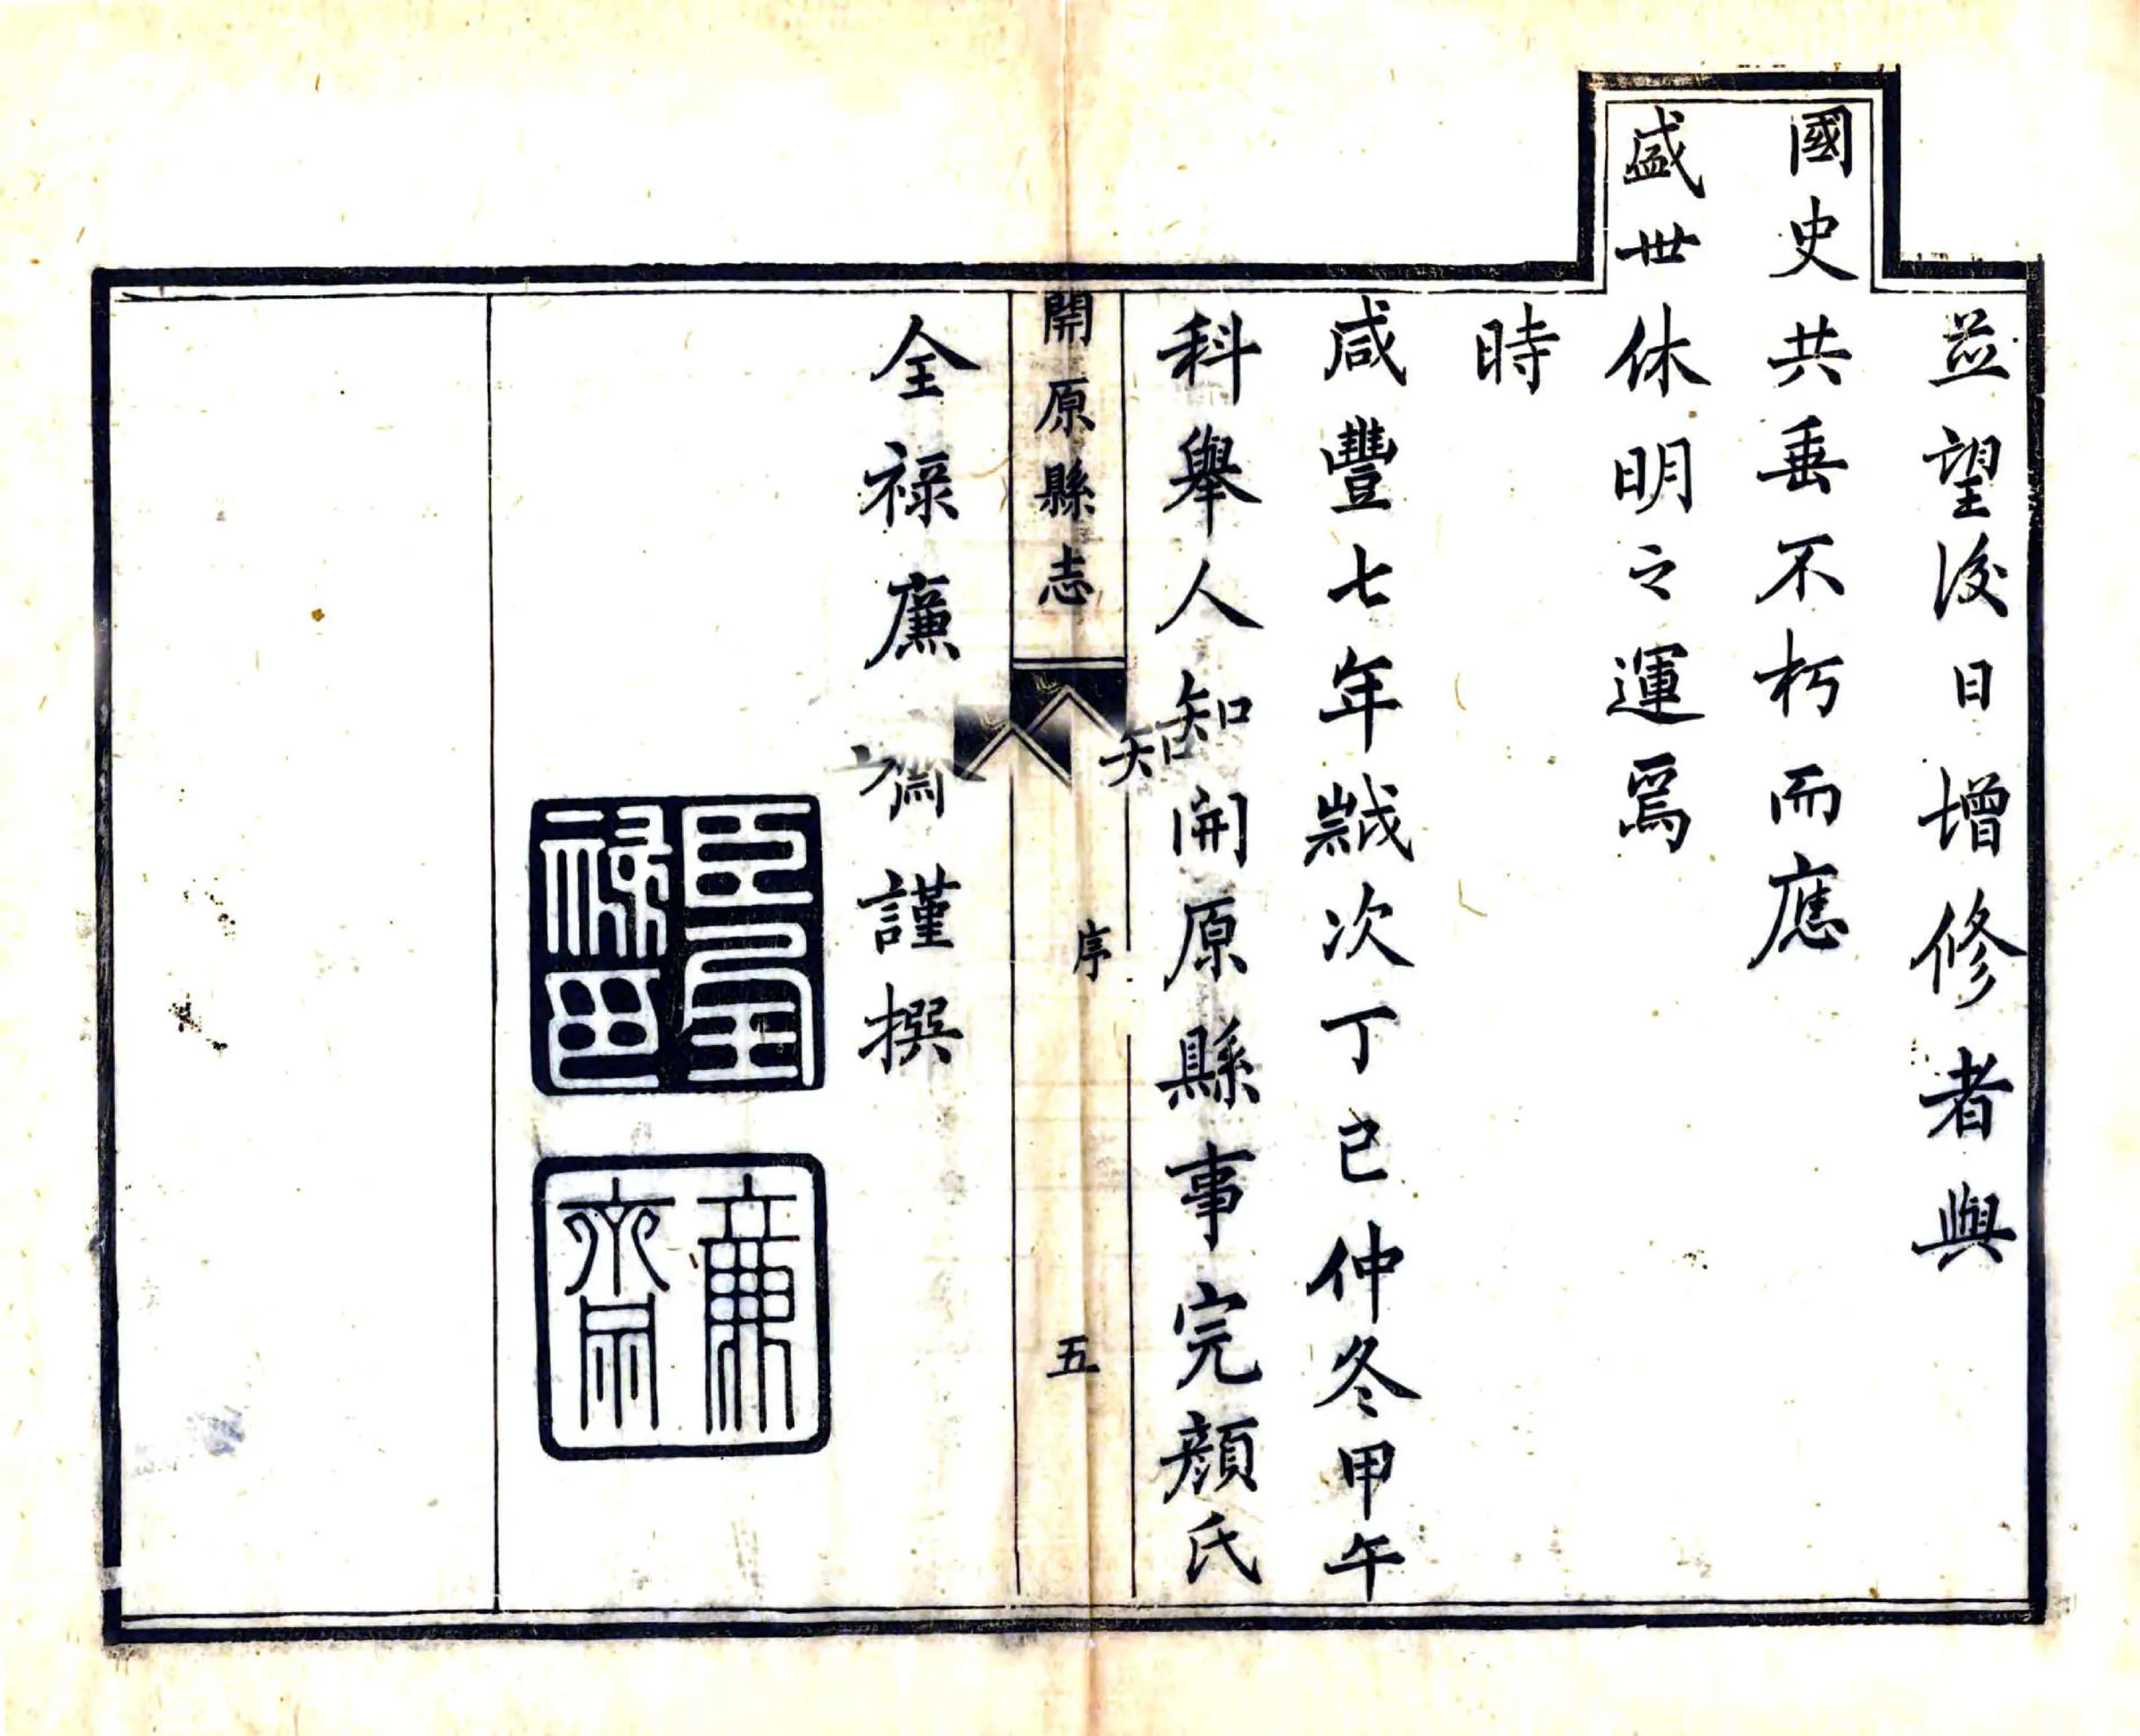 並望後日增修者與
國史共垂不朽而應
盛世休明之運焉
時
咸豐七年歲次丁巳仲冬甲午
科舉人知開原縣事完顏氏
開原縣志
序
五
全祿廉齋謹撰
臣全祿印
廉齋